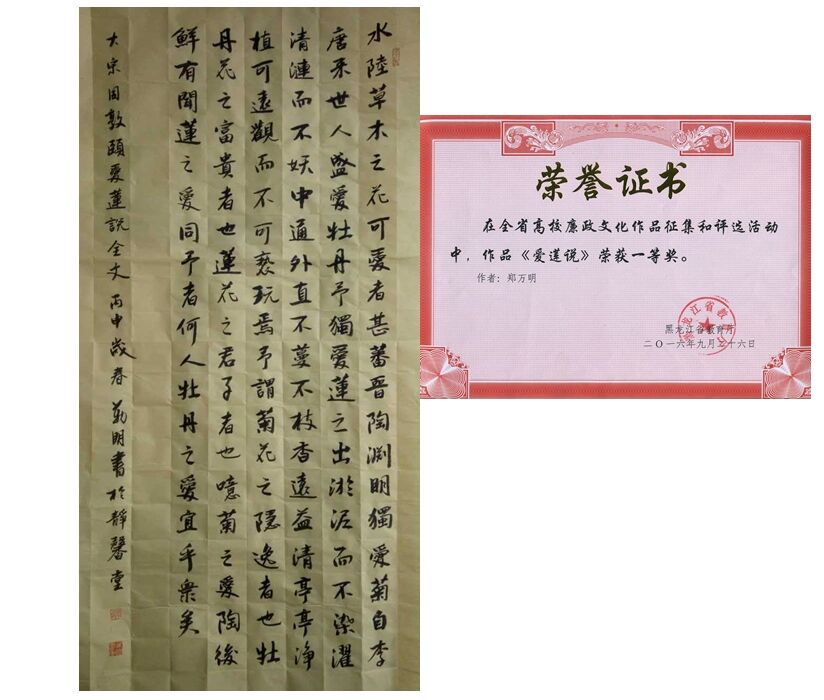 水陸草木之花可愛者甚蕃晉陶渊明獨愛菊自李
唐来世人盛愛牡丹予獨愛蓮之出淤泥而不染濯
清漣而不妖中通外直不蔓不枝香遠益清亭亭浄
植可遠觀而不可亵玩焉予謂菊花之隱逸者也牡
丹花之富貴者也蓮花之君子者也噫菊之愛陶後
鮮有聞蓮之愛同予者何人牡丹之愛宜乎衆矣
大宋周敦頤愛蓮說全文丙申歲春萬明書於靜馨堂
荣誉证书
在全省高校廉政文化作品征集和评选活动
中，作品《爱莲说》荣获一等奖。
作者：郑万明
黑龙江省教育厅
二〇一六年九月二十六日